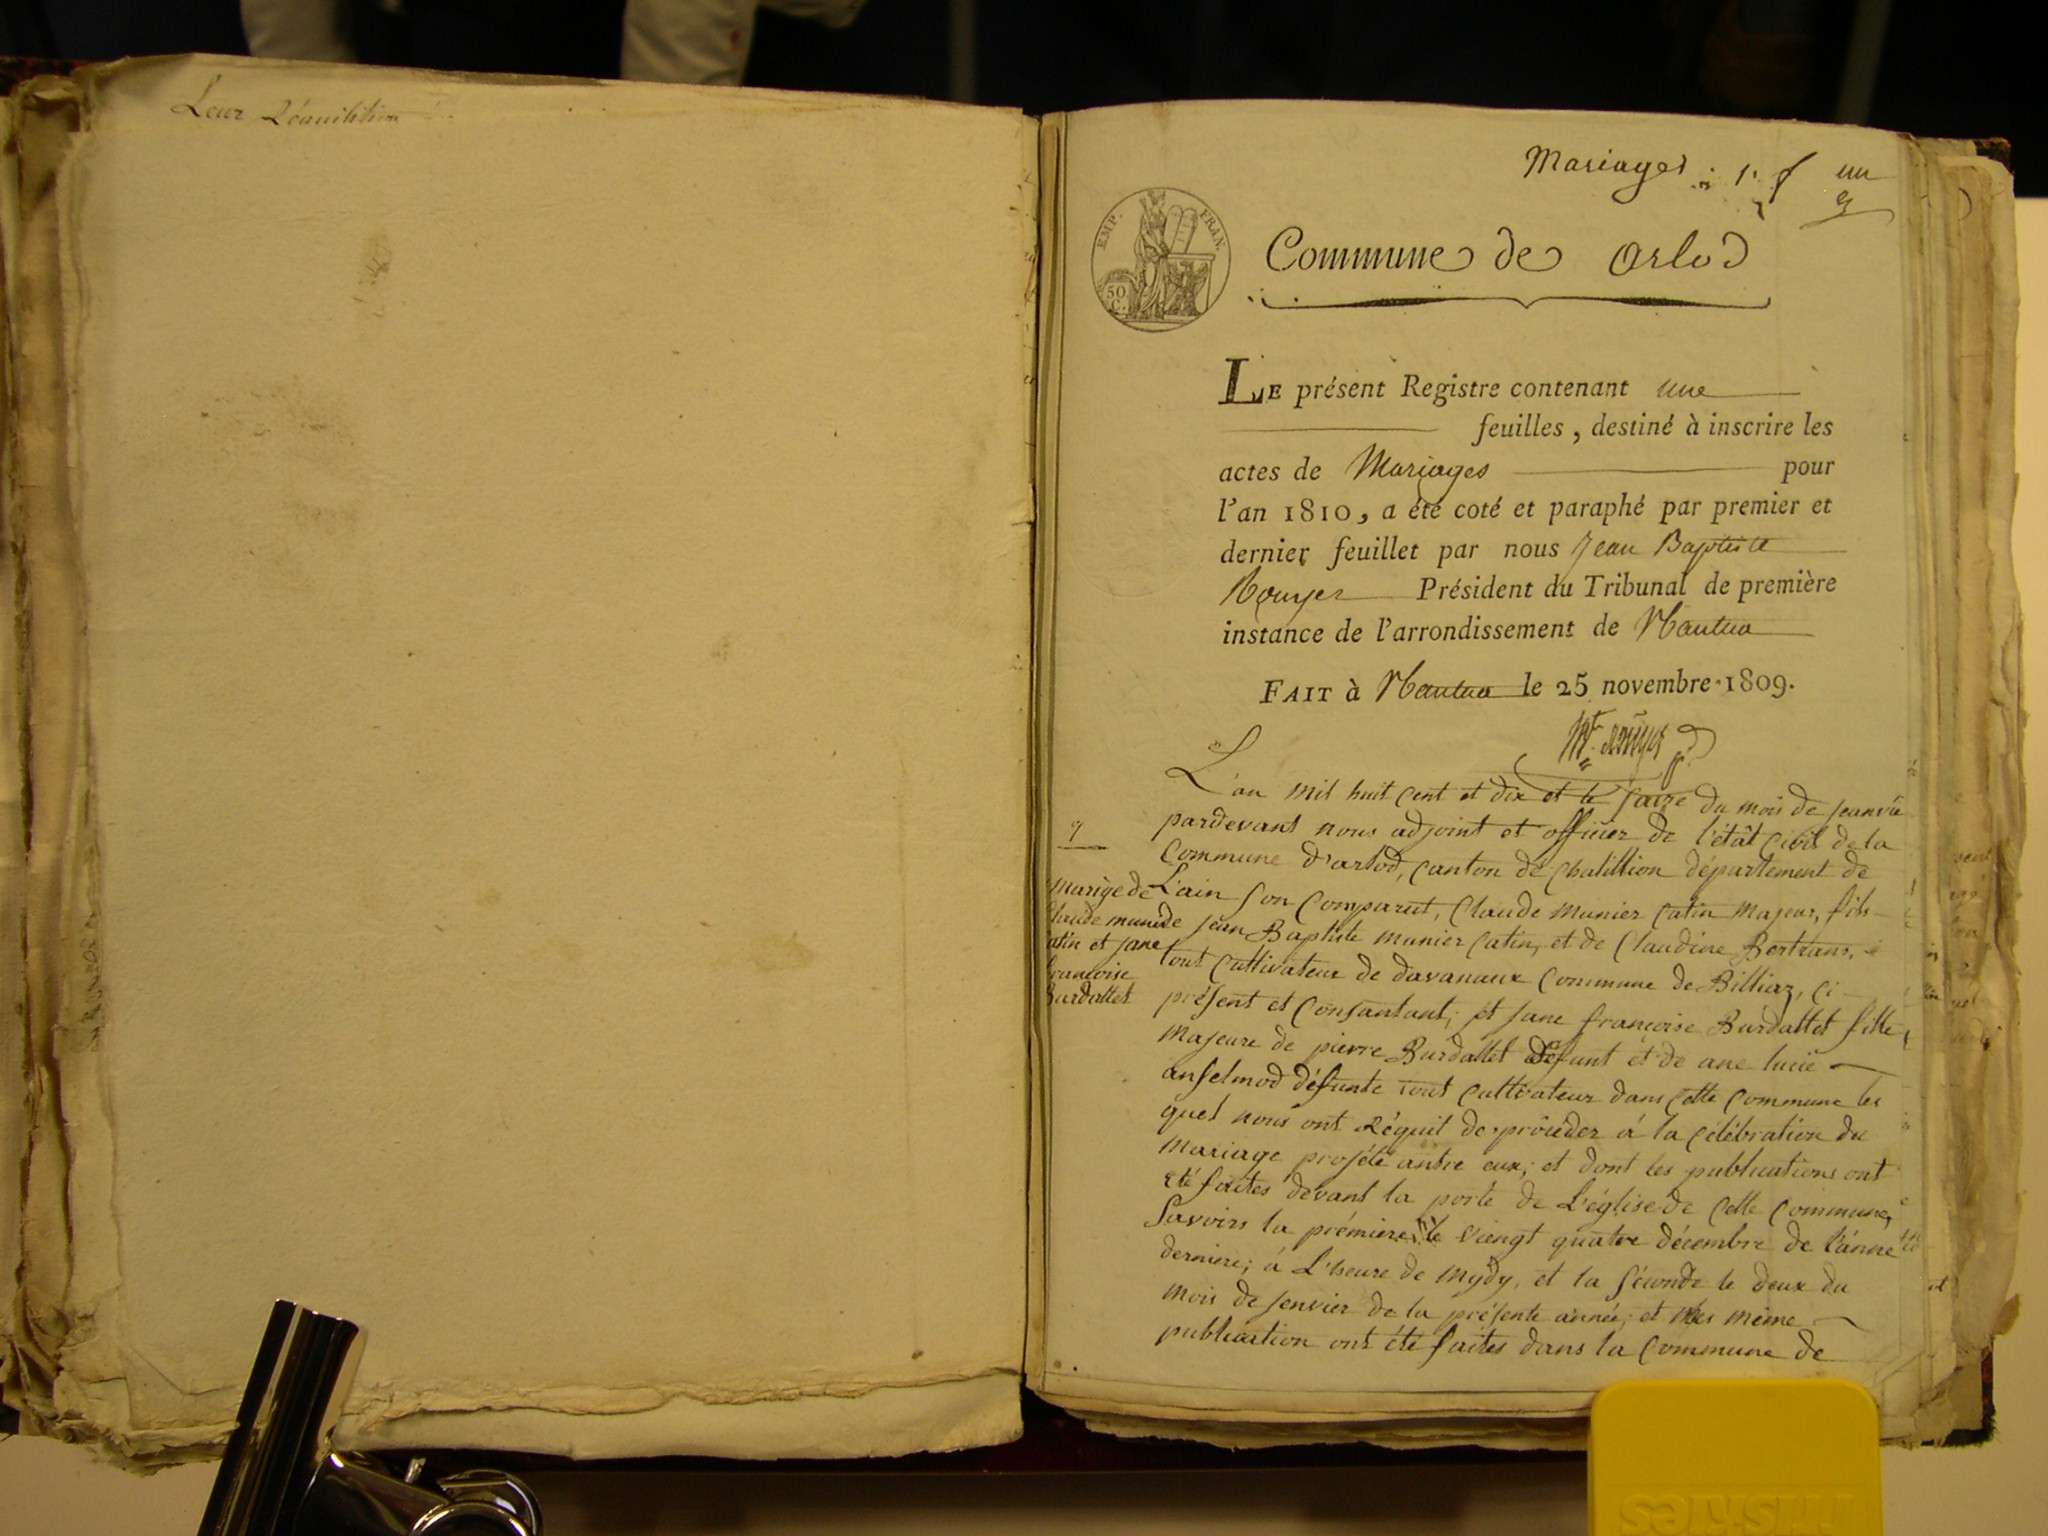 Leur Réquisition
Mariages 1. f un
EMP. FRAN.
50 C.
Commune de Arlod
LE présent Registre contenant une
feuilles, destiné à inscrire les
actes de Mariages pour
l'an 1810, a été coté et paraphé par premier et
dernier feuillet par nous Jean Baptiste
Rouyer Président du Tribunal de première
instance de l'arrondissement de Nantua
FAIT à Nantua le 25 novembre 1809.
Rouyer
L'an mil huit cent et dix et le saize du mois de jeanvié
pardevant nous adjoint et officier de l'étât civil de la
Commune d'arlod, canton de chatillion département de
L'ain son comparut, Claude munier catin majeur, fils
de jean Baptiste munier catin, et de Claudine Bertrand,
tout cultivateur de davanaux commune de Billiaz, ci
présent et consantant; et jane françoise Burdallet fille
majeure de pierre Burdallet défunt et de ane lucie
anselmod défunte tout cultivateur dans cette commune les
quel nous ont réquit de procéder á la célébration du
mariage projété antre eux; et dont les publications ont
été faites devant la porte de L'église de cette commune,
savoirs la prémiere le viengt quatre décembre de l'anné
derniere; á L'heure de mydy, et la séconde le deux du
mois de jenvier de la présente année; et les méme
publication ont été faites dans la commune de
marige de
Claude munié
catin et jane
françoise
Burdallet